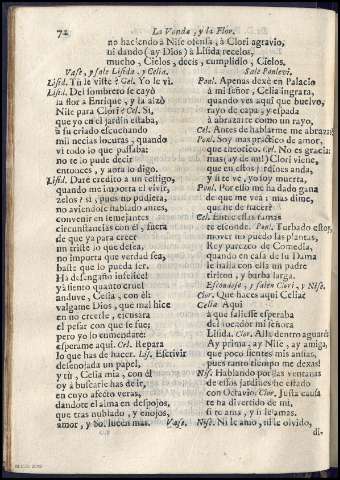 72
La Vanda, y la Flor.
no haciendo à Nise ofensa, à Clori agravio,
ni dando (ay Dios) à Lisida recelos,
mucho, Cielos, decis, cumplidlo, Cielos.
Vase, y sale Lisida, y Celia.
Lisid. Tù le viste? Cel. Yo le vi.
Lisid. Del sombrero se cayò
la flor à Enrique, y la alzò
Nise para Clori? Cel. Si,
que yo en el jardin estaba,
à su criado escuchando
mil necias locuras, quando
vì todo lo que passaba:
no te lo pude decir
entonces, y aora lo digo.
Lisid. Darè credito à un testigo,
quando me importa el vivir,
zelos? si; pues no pudiera,
no aviendose hablado antes,
convenir en semejantes
circunstancias con èl, fuera
de que ya para creer
un triste lo que desea,
no importa que verdad sea,
baste que lo pueda ser.
Ha desengaño infelice!
yà siento quanto cruel
anduve, Celia, con èl:
valgame Dios, què mal hice
en no creerle, escusara
el pesar con que se fue;
pero yo lo enmendarè:
esperame aqui. Cel. Repara
lo que has de hacer. Lis. Escrivir
desenojada un papel,
y tù, Celia mia, con èl
oy à buscarle has de ir,
en cuyo afecto veràs,
dandote el alma en despojos,
que tras nublado, y enojos,
amor, y Sol lucen mas. Vase.
Sale Ponlevi.
Ponl. Apenas dexè en Palacio
à mi señor, Celia ingrata,
quando ves aqui que buelvo,
rayo de capa, y espada
à abrazarte como un rayo,
Cel. Antes de hablarme me abrazas?
Ponl. Soy mas practico de amor,
que theorico. Cel. No es gracia:
mas (ay de mi!) Clori viene,
que en estos jardines anda,
y si te vè, yo soy muerta,
Ponl. Por esso me ha dado gana
de que me vea; mas dime,
què he de hacer?
Cel. Entre estas ramas
te esconde. Ponl. Turbado estoy,
mover no puedo las plantas,
Rey parezco de Comedia,
quando en casa de su Dama
le halla con ella un padre
tiritona, y barba larga.
Escondese, y salen Clori, y Nise.
Clor. Què haces aqui Celia?
Celia. Aqui
à que saliesse esperaba
del tocador mi señora
Lisida. Clor. Allà dentro aguarda.
Ay prima, ay Nise, ay amiga,
què poco sientes mis ansias,
pues tanto tiempo me dexas!
Nis. Hablando por las ventanas
de essos jardines he estado
con Octavio. Clor. Justa causa
te ha divertido de mi,
si te ama, y si le amas.
Nis. Ni le amo, ni le olvido,
di-